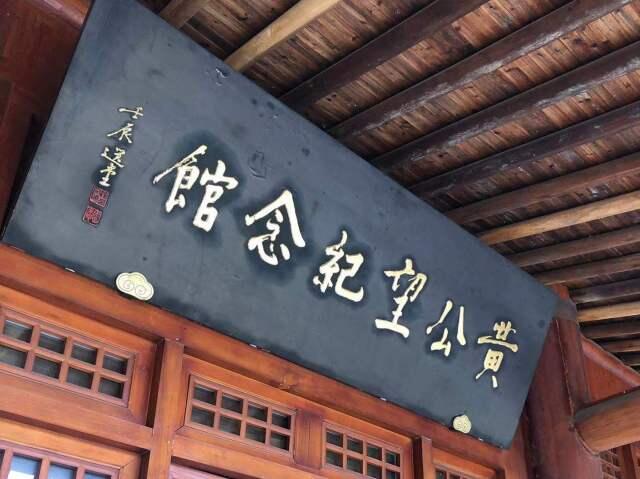 黄公望紀念館
壬辰 選堂